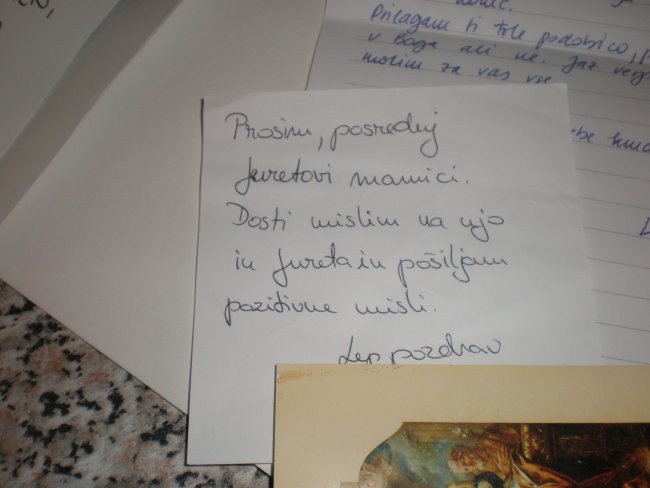 Prilagam ti tole podobico,
v Boga ali ne. Jaz
molim za vas vse
Prosim, posreduj
Juretovi mamici.
Dosti mislim na njo
in Jureta in pošiljam
pozitivne misli.
Lep pozdrav